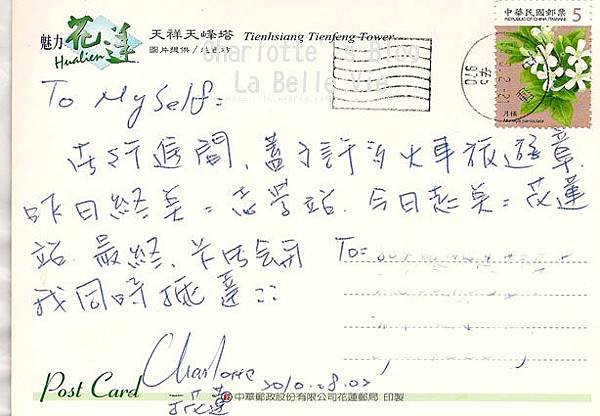 魅力花蓮
Hualien
天祥天峰塔
Tienhsiang Tienfeng Tower
圖片提供/
Charlotte's Blog
La Belle Vie
中華民國郵票
REPUBLIC OF CHINA (TAIWAN)
5
月橘
Murraya paniculata
970
To Myself:
旅行途間、蓋了許多火車旅遊章.
昨日終點=志學站. 今日起點=花蓮
站. 最終、卡片會和
我同時抵達::
To=
Charlotte
于花蓮
2010.08.02
Post Card
中華郵政股份有限公司花蓮郵局 印製